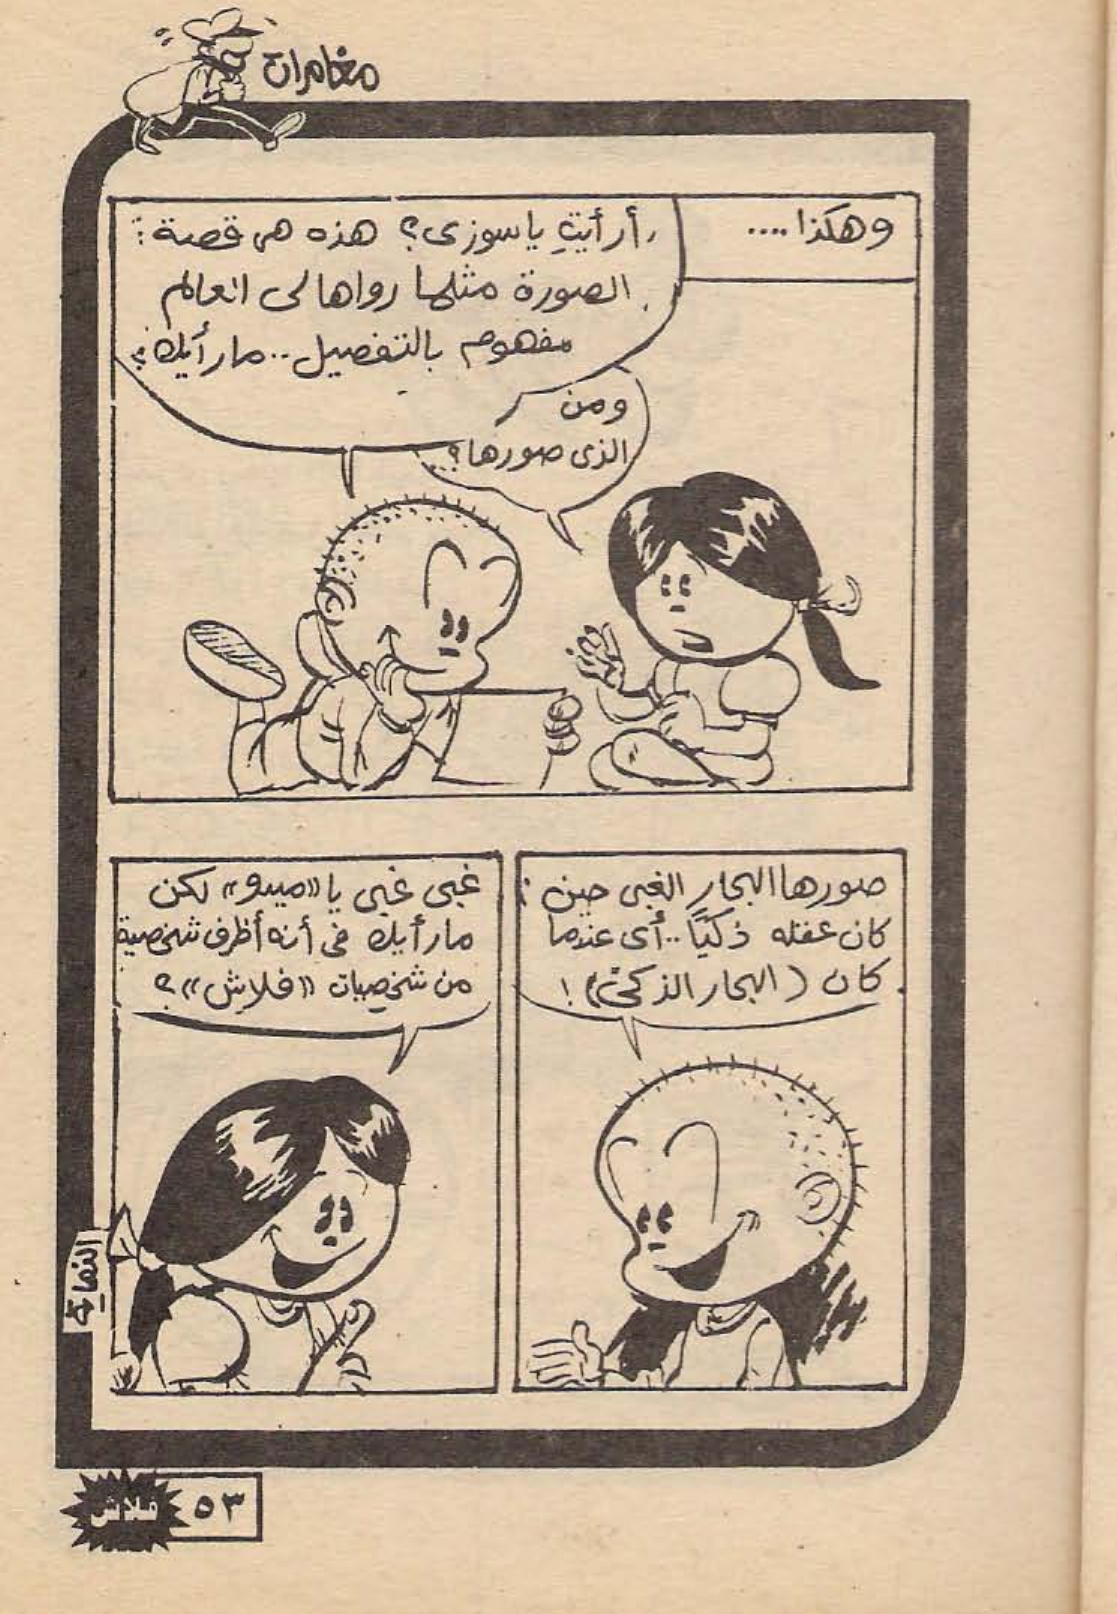 مغامرات
وهكذا....
أرأيتِ ياسوزى؟ هذه هى قصة
الصورة مثلما رواها لى العالم
مفهوم بالتفصيل.. مارأيك؟
ومن
الذى صورها؟..
صورها البحار الغبى حين
كان عقله ذكيًا.. أى عندما
كان (البحار الذكى)!
غبى غبى يا «ميدو» لكن
مارأيك فى أنه أظرف شخصية
من شخصيات «فلاش»؟
النهاية
فلاش ٥٣